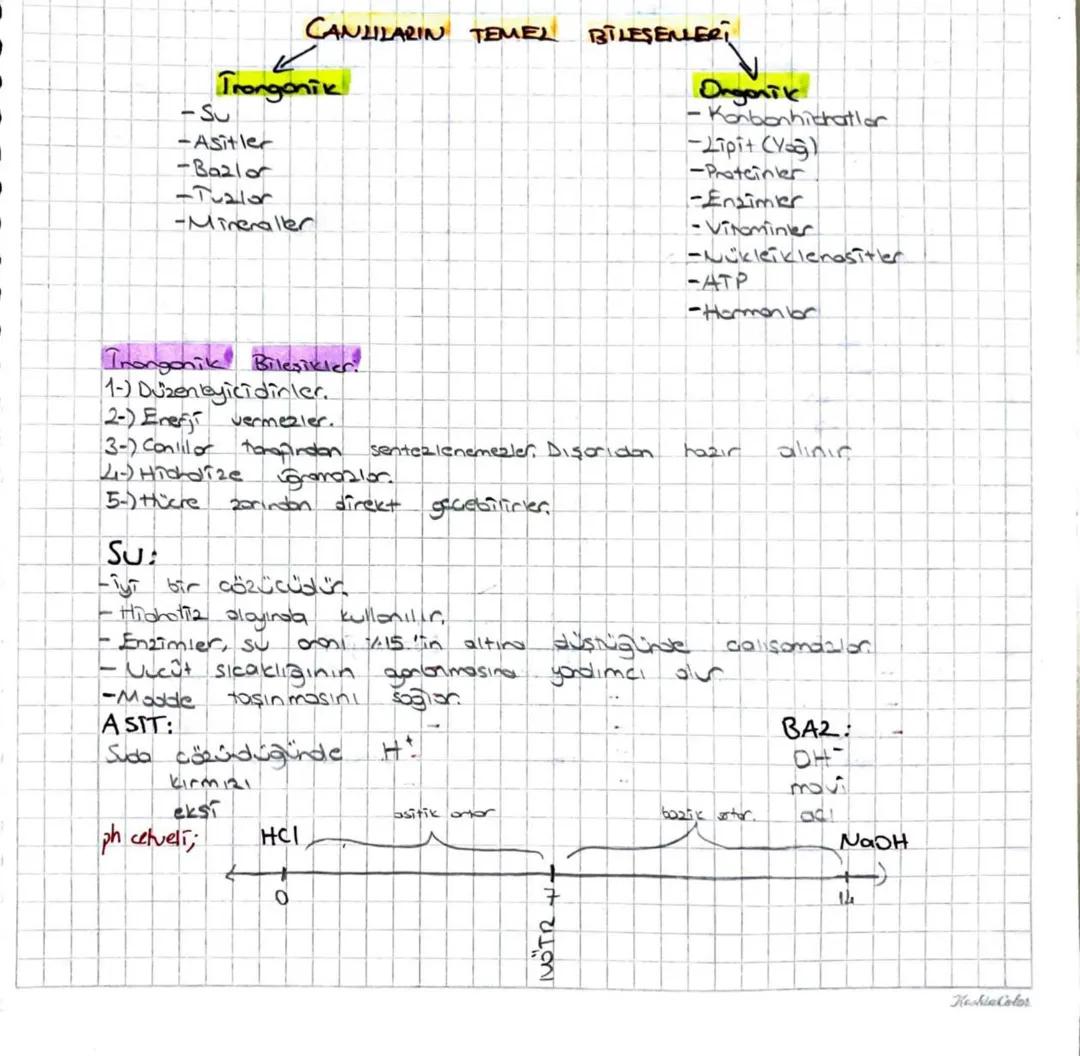 CANLILARIN TEMEL BİLEŞENLERİ
İnorganik
- Su
- Asitler
- Bazlar
- Tuzlar
- Mineraller
Organik
- Karbonhidratlar
- Lipit (Yağ)
- Proteinler
- Enzimler
- Vitaminler
- Nükleiklenasitler
- ATP
- Hormonlar
İnorganik Bileşikler:
1-) Düzenleyicidirler.
2-) Enerji vermezler.
3-) Canlılar tarafından sentezlenemezler. Dışarıdan hazır alınır.
4-) Hidrolize uğramazlar.
5-) Hücre zarından direkt geçebilirler.
SU:
- iyi bir çözücüdür.
- Hidroliz olayında kullanılır.
- Enzimler, su oranı %15'in altına düştüğünde çalışamazlar.
- Vücüt sıcaklığının ayarlanmasına yardımcı olur
- Madde taşınmasını sağlar.
ASİT:
Suda çözündüğünde H⁺
kırmızı
ekşi
BAZ:
OH⁻
mavi
acı
ph cetveli;
HCl
asitik ortar
bazik ortar.
NaOH
0
7
14
NÖTR